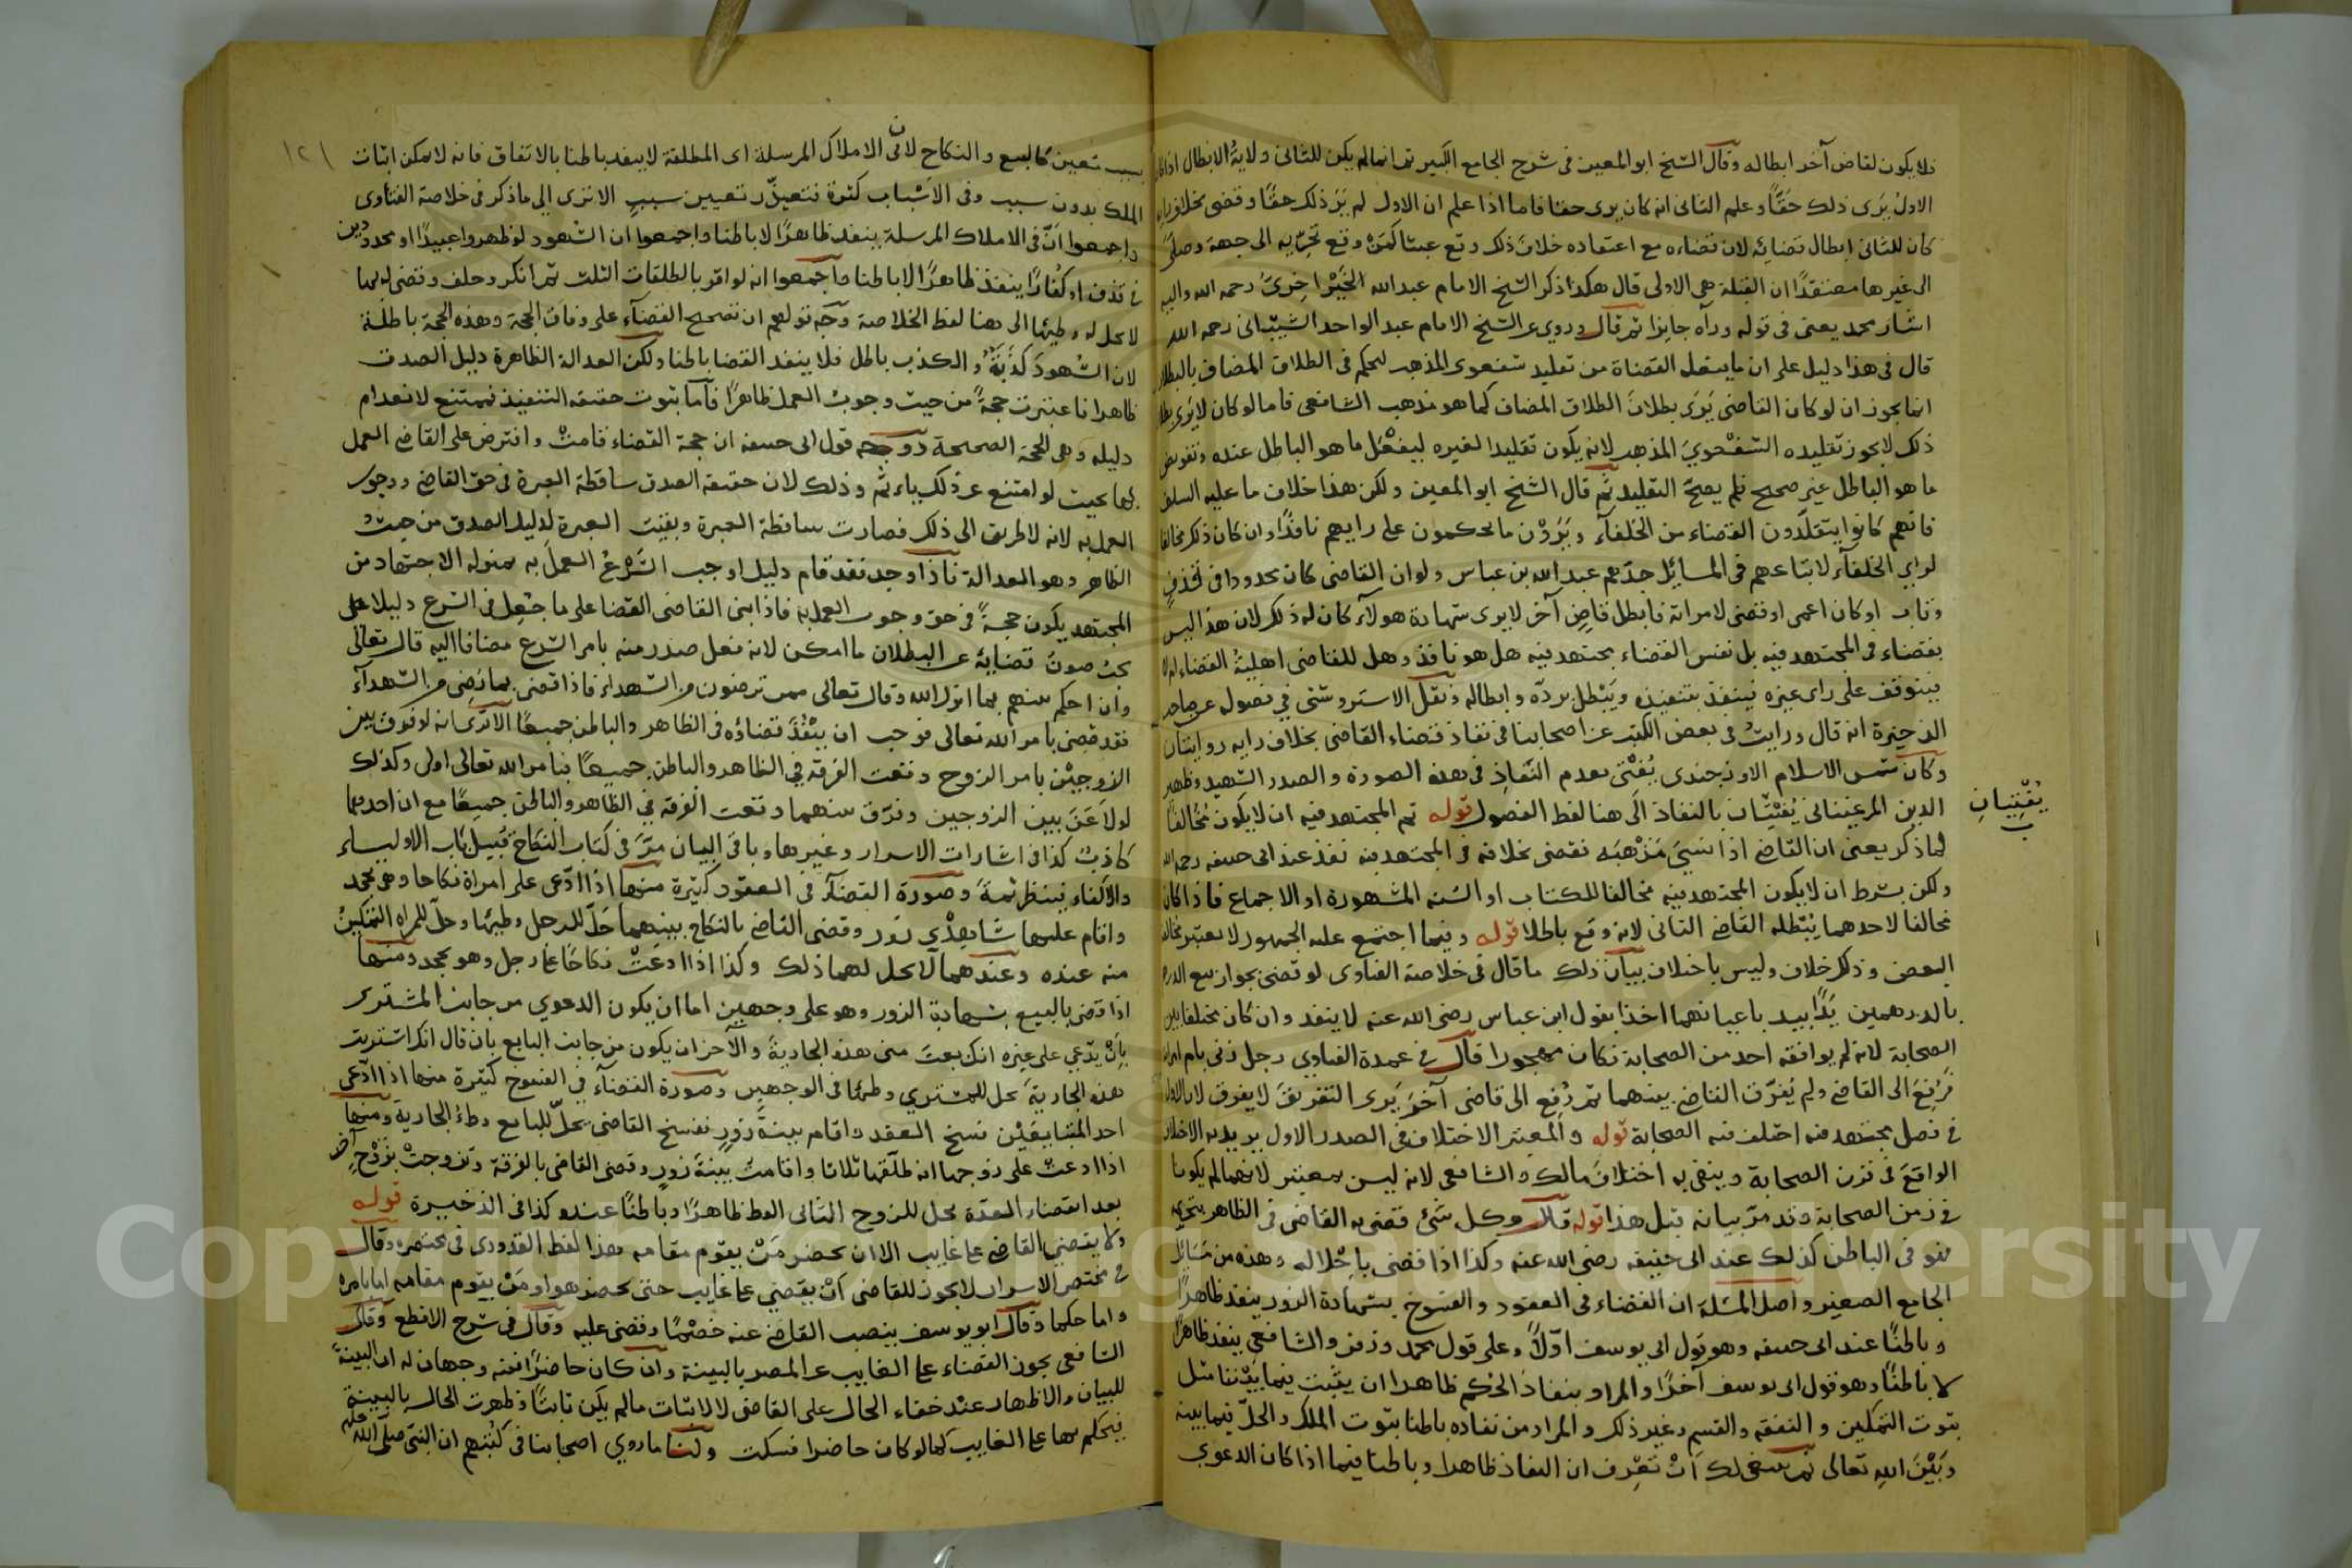 فلا يكون لقاض آخر ابطاله وقال الشيخ ابو المعين في شرح الجامع الكبير ثم انما لم يكن للثاني ولاية الابطال اذا كان
الاول يَرَى ذلك حقًّا وعلم الثاني انه كان يرى حقا فاما اذا علم ان الاول لم يَرَ ذلك حقًا وقضى بخلاف رايه
كان للثاني ابطال قضائه لان قضاءه مع اعتقاده خلافَ ذلك وقع عبثا كمَنْ وقع تحرّيه الى جهة وصلى
الى غيرها معتقدًا ان القبلة هي الاولى قال هكذا ذكر الشيخ الامام عبد الله الخَيْزاخزيّ رحمه الله واليه
اشار محمد يعني في قوله ورآه جايزا ثم قال وروي عن الشيخ الامام عبد الواحد الشيباني رحمه الله
قال في هذا دليل على ان ما يفعل القضاة من تقليد شفعوى المذهب ليحكم في الطلاق المضاف بالبطلان
انما يجوز ان لو كان القاضي يَرَى بطلانَ الطلاق المضاف كما هو مذهب الشافعي فاما لو كان لا يرى بطلان
ذلك لا يجوز تقليده الشفعويَّ المذهب لانه يكون تقليدا لغيره ليفْعَل ما هو الباطل عنده وتفويض
ما هو الباطل غير صحيح فلم يصحّ التقليد ثم قال الشيخ ابو المعين ولكن هذا خلاف ما عليه السلف
فانهم كانوا يتقلّدون القضاء من الخلفآء ويَرَوْن ما يحكمون على رايهم نافذًا وان كان ذلك مخالفا
لراي الخلفآء لاتباعهم في المسائل جدّهم عبد الله بن عباس ولو ان القاضي كان محدودا في قذفٍ
وتاب او كان اعمى او قضى لامراته فابطل قاضٍ آخر لا يرى شهادة هولآء كان له ذلك لان هذا ليس
بقضاء في المجتهد فيه بل نفس القضاء مجتهد فيه هل هو نافذ وهل للقاضي اهليةُ القضاء ام لا
فيتوقف على راى غيره فينفذ بتنفيذه ويَبْطل بردّه وابطاله ونقل الاستروشني في فصوله عن صاحب
الذخيرة انه قال ورايتُ في بعض الكتب عن اصحابنا في نفاذ قضاء القاضي بخلاف رايه روايتان
وكان شمس الاسلام الاوزجندى يُفْتى بعدم النَّفاذِ في هذه الصورة والصدر الشهيد وظهير
الدين المرغيناني يُفْتِيَان بالنفاذ الى هنا لفظ الفصول قوله ثم المجتهد فيه ان لا يكون مُخالفًا
يُفْتِيانِ
لما ذكر يعني ان القاضي اذا نسِيَ مَذْهبَه فقضى بخلافه في المجتهد فيه نفذ عند ابي حنيفه رحمه الله
ولكن بشرط ان لا يكون المجتهد فيه مخالفا للكتاب او السُنه المشهورة او الاجماع فاذا كان
مخالفا لاحدهما يُبْطله القاضي الثاني لانه وقع باطلا قوله وفيما اجتمع عليه الجمهور لا يعتبر مخالفة
البعض وذلك خلاف وليس باختلاف بيان ذلك ما قال في خلاصة الفتاوى لو قضى بجواز بيع الدرهم
بالدرهمين يَدًا بيد باعيانهما اخذا بقول ابن عباس رضي الله عنه لا ينفذ وان كان مختلفا بين
الصحابة لانه لم يوافقه احد من الصحابة فكان مهجورا قال في عمدة الفتاوي رجل زنى بام امراته
فرُفِعَ الى القاضي ولم يُفرّق القاضي بينهما ثم رُفع الى قاضي آخر يَرى التفريقَ لا يفرق لان الاول
في فصل مجتهد فيه اختلف فيه الصحابة قوله والمعتبر الاختلاف في الصدر الاول يريد به الاختلاف
الواقعَ في قرن الصحابة وينفي به اختلافَ مالك والشافعي لانه ليس بمعتبر لانهما لم يكونا
في زمن الصحابة وقد مرّ بيانه قبل هذا قوله قال وكل شئ قضى به القاضي في الظاهر بتحريمه
فهو في الباطن كذلك عند ابي حنيفه رضي الله عنه وكذا اذا قضى باحْلاله وهذه من مَسَائل
الجامع الصغير واصل المسئلة ان القضاء في العقود والفسوخ بشهادة الزور ينفذ ظاهرًا
وباطنًا عند ابي حنيفه وهو قول ابي يوسف اوّلاً وعلى قول محمد وزفر والشافعي ينفذ ظاهرًا
لا باطنًا وهو قول ابى يوسف آخرًا والمراد بنفاذ الحُكْم ظاهرا ان يثبت فيما بيْننا مثل
ثبوت التمكين والنفقه والقسم وغير ذلك والمراد من نفاذه باطنا ثبوت الملك والحلّ فيما بينه
وبَيْنَ اللهِ تعالى ثم ينبغي لك اَنْ تعْرِف ان النفاذ ظاهرا وباطنا فيما اذا كان الدعوي
١٢١
بسبب معين كالبيع والنكاح لان في الاملاك المرسلة اى المطلقة لا ينفذ باطنا بالاتفاق فانه لا يمكن اثبات
الملك بدون سبب وفي الاسْباب كثرة فتعذّر تعيين سببٍ الا ترى الى ما ذكر في خلاصة الفتاوى
واجمعوا انّ في الاملاك المرسلة ينفذ ظاهرًا لا باطنا واجمعوا ان الشهود لو ظهروا عبيدًا او محدودين
في قذف او كُفارًا ينفذ ظاهرًا لا باطنا واجمعوا انه لو اقر بالطلقات الثلث ثم انكر وحلف وقضى له بها
لا يحل له وطيها الى هنا لفظ الخلاصة وجه قولهم ان تصحيح القضآء على وفاق الحجة وهذه الحجة باطلة
لان الشُهودَ كذَبَةٌ والكذب باطل فلا ينفذ القضا باطنا ولكن العدالة الظاهرة دليل الصدق
ظاهرا فاعتبرت حجةً من حيث وجوب العمل ظاهرًا فاما ثبوت حقيقه التنفيذ فممتنع لانعدام
دليله وهي الحجة الصحيحة ووجه قول ابى حنيفه ان حجة القضاء قامتْ وافترض على القاضي العمل
بها بحيث لو امتنع عن ذلك ياءثم وذلك لان حقيقه الصدق ساقطة العبرة في حق القاضي ووجوب
العمل به لانه لا طريق الى ذلك فصارت ساقطة العبرة وبقيت العبرة لدليل الصدق من حيثُ
الظاهر وهو العدالة فاذا وجد فقد قام دليل اوجب الشرعُ العملَ به بمنزله الاجتهاد من
المجتهد يكون حجةً في حق وجوب العمل به فاذا بنى القاضي القضا على ما جُعِل في الشرع دليلا على
يجب صونُ قضايه عن البطلان ما امكن لانه فعل صدر منه بامر الشرع مضافا اليه قال تعالى
وان احكم بينهم بما انزل الله وقال تعالى ممن ترضون من الشهداء فاذا قضى بما رُضِى من الشهدآء
فقد قضى بامر الله تعالى فوجب ان ينْفُذَ قضاؤه في الظاهر والباطن جميعًا الا ترى انه لو فرق بين
الزوجيْن بامر الزوج وقعت الفرقه في الظاهر والباطن جميعًا فبامر الله تعالى اولى وكذلك
لو لاعَنَ بين الزوجين وفرّق بينهما وقعت الفرقه في الظاهر والباطن جميعًا مع ان احدهما
كاذبٌ كذا في اشارات الاسرار وغيرها وباقي البيان مرّ في كتاب النكاح قُبَيل باب الاولياء
والاكفاء فينظر ثمة وصورة القضآء في العقود كثيرة منها اذا ادّعى على امراة نكاحا وهي تجحد
واقام عليها شاهدْي زور وقضى القاضي بالنكاح بينهما حَلّ للرجل وطيها وحلّ للمراه التمكينُ
منه عنده وعندهما لا يحل لهما ذلك وكذا اذا ادعَتْ نكاحًا على رجل وهو يجحد ومنها
اذا قضى بالبيع بشهادة الزور وهو على وجهين اما ان يكون الدعوي من جانب المشتري
بِأنْ يدّعى على غيره انك بعتَ منى هذه الجاريةَ والآخر ان يكون من جانب البايع بان قال انك اشتريت
هذه الجاريةَ يحل للمشتري وطئها في الوجهين وصورة القضآء في الفسوخ كثيرة منها اذا ادّعى
احد المتبايعَيْن فسخ العقد واقام بينةَ زورٍ ففسخ القاضي يحلّ للبايع وطءُ الجارية ومنها
اذا ادعت على زوجها انه طلّقها ثلاثا واقامتْ بينةَ زورٍ وقضى القاضي بالفرقة وتزوجتْ بزَوْجٍ آخر
بعد انقضاء العدّة يحل للزوج الثاني الوطء ظاهرًا وباطنًا عنده كذا في الذخيرة قوله
ولا يقضي القاضي على غايب الا ان يحضر مَنْ يقوم مقامه هذا لفظ القدورى في مختصره وقال
في مختصر الاسرار لا يجوز للقاضي اَنْ يقضي على غايب حتى يحضر هو او مَنْ يقوم مقامه اما بامره
واما حكما وقال ابو يوسف ينصب القاضي عنه خصْمًا وقضى عليه وقال في شرح الاقطع وقال
الشافعي يجوز القضاء على الغايب عن المصر بالبينة وان كان حاضرًا ففيه وجهان له ان البينةَ
للبيان والاظهار عنْد خفاء الحال على القاضي لا لاثبات مالم يكن ثابتًا وظهرت الحال بالبينة
فيحكم بها على الغايب كما لو كان حاضرا فسكت ولنا ما روي اصحابنا في كُتبهم ان النبيّ صلى الله عليه
Copyright © King Saud University